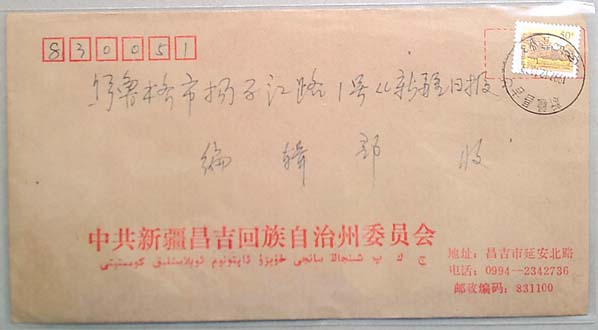 830051
乌鲁木齐市扬子江路1号《新疆日报
编辑部 收
中共新疆昌吉回族自治州委员会
ج ك پ شىنجاڭ سانجى خۇيزۇ ئاپتونوم ئوبلاستلىق كومىتېتى
地址：昌吉市延安北路
电话：0994—2342736
邮政编码：831100
50
新疆昌吉